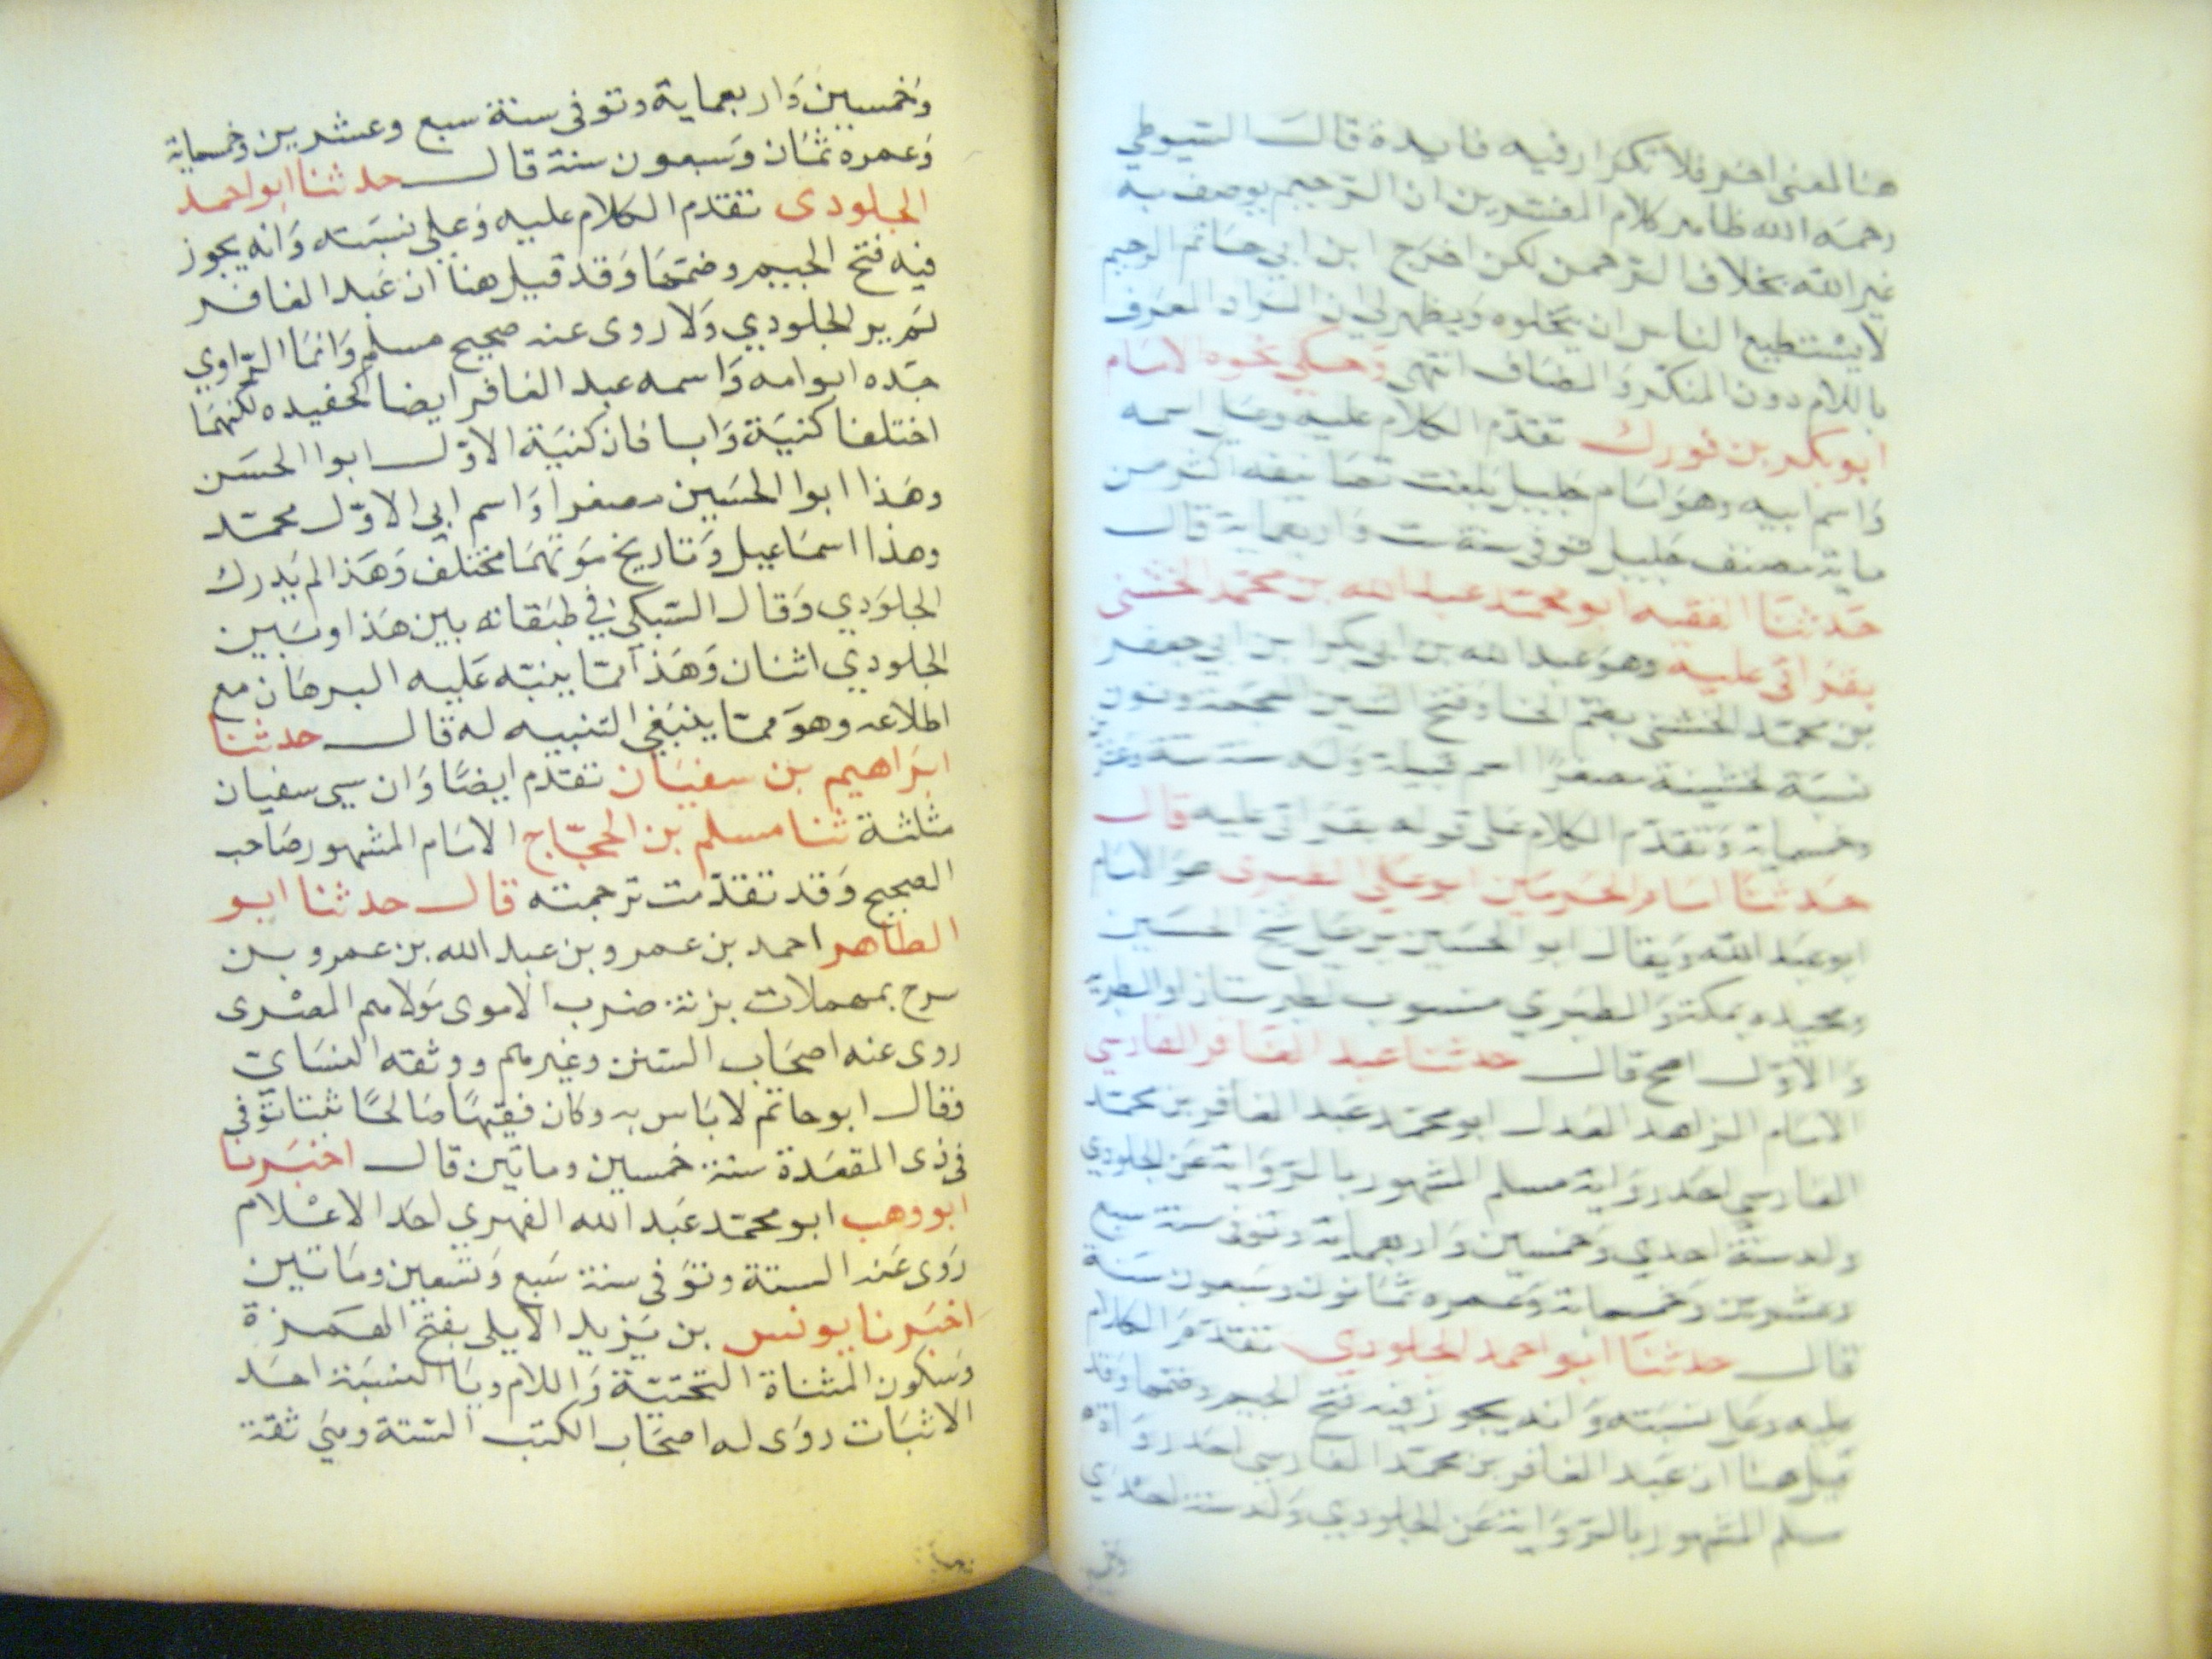 هنا لمعنى اخر فلا تكرار فيه فايدة قال السيوطي
رحمه الله ظاهر كلام المفسرين ان الرحيم يوصف به
غير الله بخلاف الرحمن لكن اخرج ابن ابي حاتم الرحيم
لا يستطيع الناس ان ينتحلوه ويظهر لي ان المراد المعرف
باللام دون المنكر والمضاف انتهى وحكي نحوه الامام
ابو بكر بن فورك تقدم الكلام عليه وعلى اسمه
واسم ابيه وهو امام جليل بلغت تصانيفه اكثر من
ماية مصنف جليل توفي سنة ست واربعماية قال
حدثنا الفقيه ابو محمد عبد الله بن محمد الخشني
بقرائي عليه وهو عبد الله بن ابي بكر بن ابي جعفر
بن محمد الخشني بضم الخا وفتح الشين المعجمة ونون
نسبة لخشينة مصغرا اسم قبيلة ولد سنة
وخمسماية وتقدم الكلام على قوله بقرائي عليه قال
حدثنا امام الحرمين ابو علي الطبري هو الامام
ابو عبد الله ويقال ابو الحسين بن علي الحسين
بمكة والطبري منسوب لطبرستان او لطبرية
والاول اصح قال حدثنا عبد الغافر الفارسي
الامام الزاهد العدل ابو محمد عبد الغافر بن محمد
الفارسي احد رواية مسلم المشهور بالرواية عن الجلودي
ولد سنة احدي وخمسين واربعماية وتوفي سنة سبع
وعشرين وخمسماية وعمره ثمانون وسبعون سنة
قال حدثنا ابو احمد الجلودي تقدم الكلام
عليه وعلى نسبته وانه يجوز فيه فتح الجيم وضمها وقد
قيل هنا ان عبد الغافر بن محمد الفارسي احد رواة
مسلم المشهور بالرواية عن الجلودي ولد سنة احدي
وخمسين واربعماية وتوفى سنة سبع وعشرين وخمسماية
وعمره ثمان وسبعون سنة قال حدثنا ابو احمد
الجلودى تقدم الكلام عليه وعلى نسبته وانه يجوز
فيه فتح الجيم وضمها وقد قيل هنا ان عبد الغافر
لم ير الجلودي ولا روى عنه صحيح مسلم وانما الراوي
جده ابو امه واسمه عبد الغافر ايضا كحفيده لكنهما
اختلفا كنية وابا فان كنية الاول ابوا الحسن
وهذا ابوا الحسين مصغرا واسم ابي الاول محمد
وهذا اسماعيل وتاريخ موتهما مختلف وهذا لم يدرك
الجلودي وقال السبكي في طبقاته بين هذا وبين
الجلودي اثنان وهذا مما ينبه عليه البرهان مع
اطلاعه وهو مما ينبغي التنبيه له قال حدثنا
ابراهيم بن سفيان تقدم ايضا وان سين سفيان
مثلثة ثنا مسلم بن الحجاج الامام المشهور صاحب
الصحيح وقد تقدمت ترجمته قال حدثنا ابو
الطاهر احمد بن عمرو بن عبد الله بن عمرو بن
سرح بمهملات بزنة ضرب الاموى مولاهم المصرى
روى عنه اصحاب السنن وغيرهم ووثقه النساي
وقال ابو حاتم لا باس به وكان فقيها صالحا ثبتا توفى
فى ذى القعدة سنة خمسين وماتين قال اخبرنا
ابو وهب ابو محمد عبد الله الفهري احد الاعلام
روى عنه الستة وتوفى سنة سبع وتسعين وماتين
اخبرنا يونس بن يزيد الايلى بفتح الهمزة
وسكون المثناة التحتية واللام ويا النسبة احد
الاثبات روى له اصحاب الكتب الستة وهي ثقة